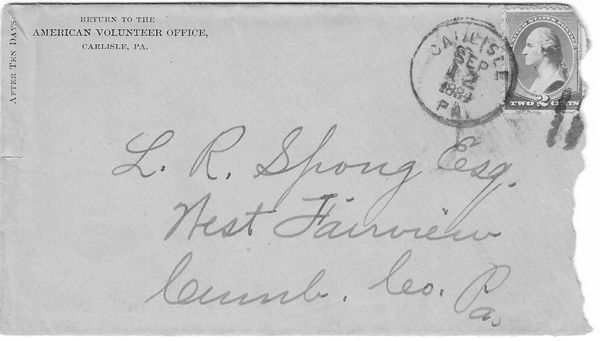 AFTER TEN DAYS
RETURN TO THE
AMERICAN VOLUNTEER OFFICE,
CARLISLE, PA.
CARLISLE
SEP
PA.
UNITED STATES POSTAGE
TWO 2 CENTS
L. R. Spong Esq.
West Fairview
Cumb. Co. Pa.